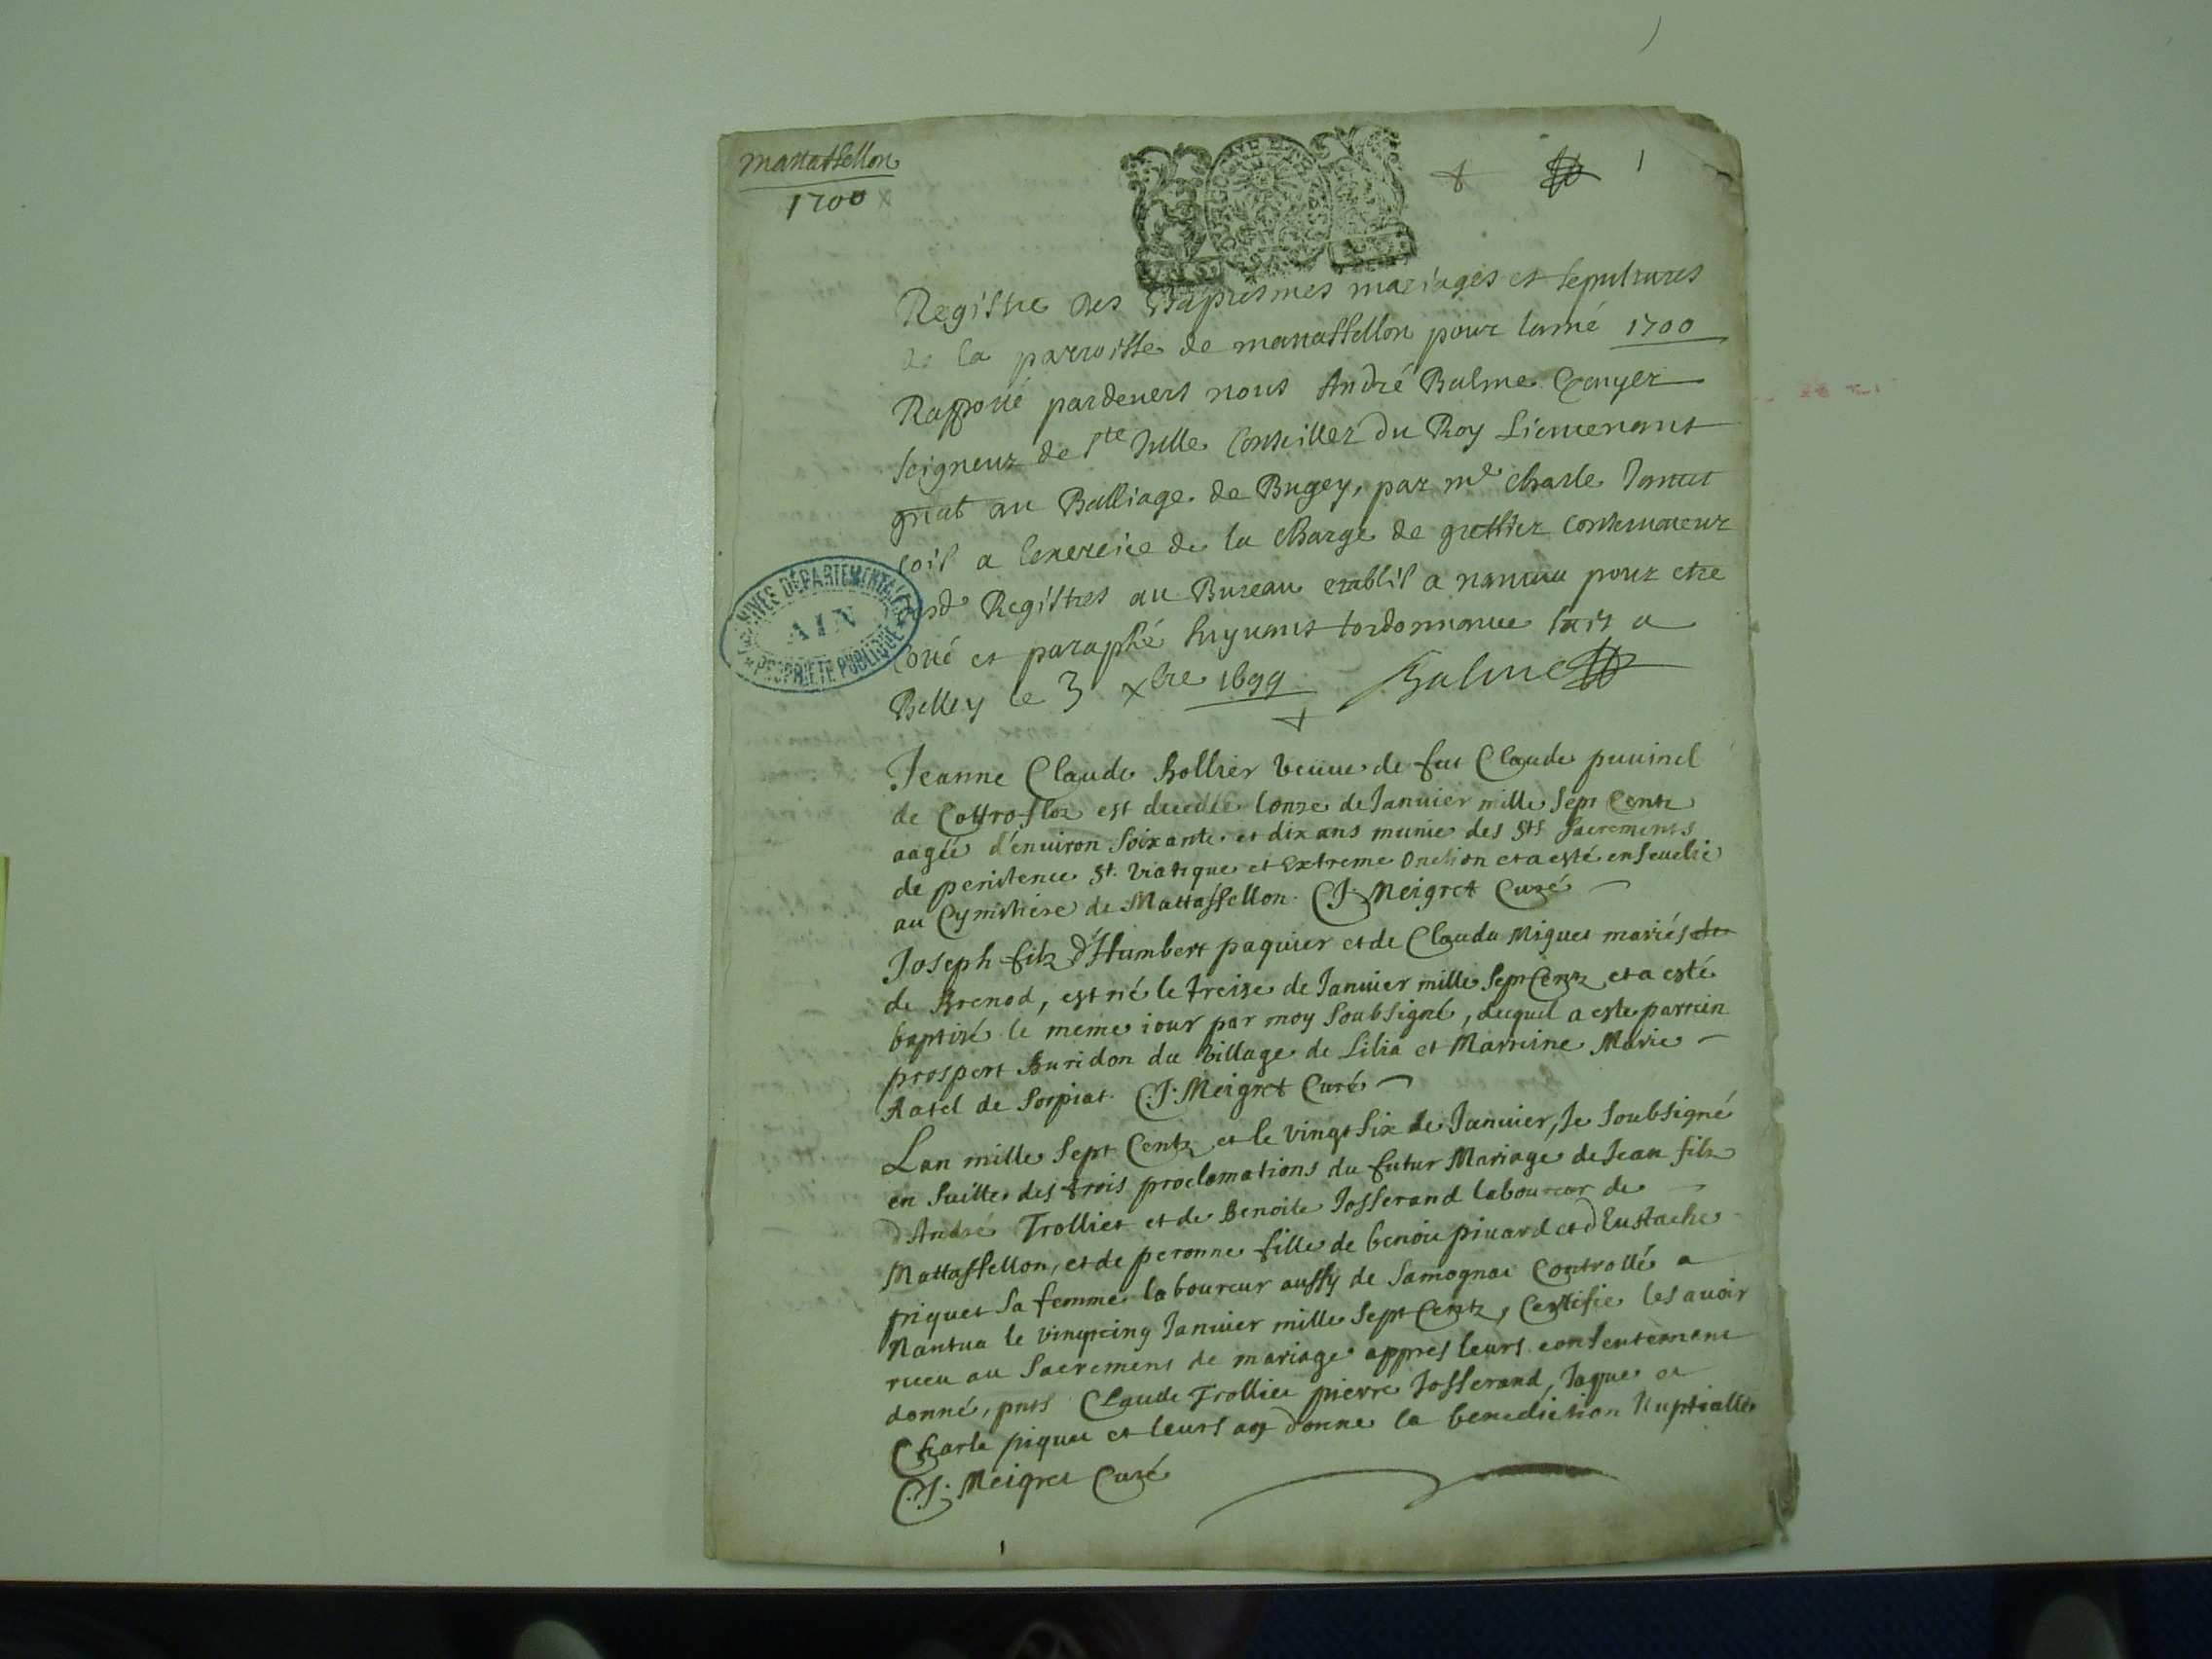 mattassellon
1700
1
Registre des Baptesmes mariages et sepultures
de la parroisse de mattassellon pour lanné 1700
Rapporté pardevers nous André Balme Escuyer
seigneur de Ste Julle Conseiller du Roy Lieutenant
gnal au Balliage de Bugey, par me charle
a lexercice de la charge de greffier conservateur
desd Registres au Bureau establit a nantua pour etre
cotté et paraphé suyvant lordonnance fait a
Belley le 3 xbre 1699 Balme
ARCHIVES DÉPARTEMENTALES
AIN
PROPRIÉTÉ PUBLIQUE
Jeanne Claude Bollier veüve de feu Claude
de est decedée lonze de Janvier mille Sept Centz
aagée d'environ Soixante et dix ans munie des Sts Sacrements
de penitence St. viatique et Extreme Onction et a esté ensevelie
au Cymistiere de Mattassellon. C. J. Meigret Curé
Joseph filz d'Humbert paquier et de Clauda Miguet mariés
de Brenod, est né le treize de Janvier mille Sept Centz et a esté
baptisé le meme iour par moy Soubsigné, duquel a este parrein
prospert Buridon du village de Lilia et Marreine Marie
Ratel de Sorpiat. C. J. Meigret Curé
Lan mille Sept Centz et le vingt Six de Janvier, Je Soubsigné
en Suitte des trois proclamations du futur Mariage de Jean filz
d'André Trolliet et de Benoite Josserand laboureur de
Mattassellon, et de peronne fille de benoit pivard et d'Eustache
piquet Sa femme laboureur aussy de Samognat Controllé a
Nantua le vingtcinq Janvier mille Sept Centz, Certifie les avoir
receu au Sacrement de mariage appres leurs consentement
donné, pnts Claude Trolliet pierre Josserand, Jaque et
Charle piquet et leurs ay donne la benediction Nuptialle
C. J. Meigret Curé
1